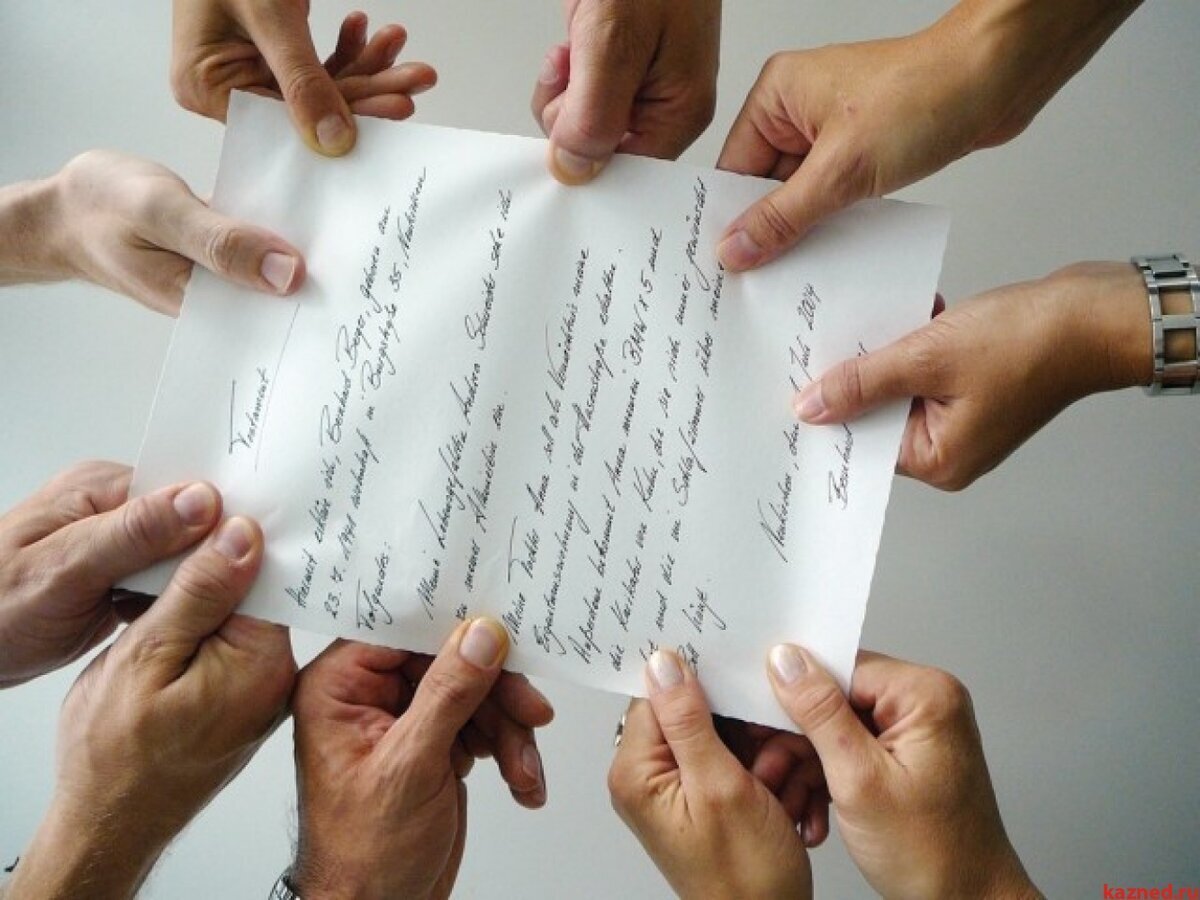 Testament
Hiermit erkläre ich, Bernhard Berger, geboren am
23.7.1941 wohnhaft in Burgstraße 35, Neukirchen
Folgendes:
Meine Lebensgefährtin Andrea Schwarte setze ich
zu meiner Alleinerbin ein.
Meine Tochter Anna soll als Vermächtnis meine
Eigentumswohnung in der Hasenstraße erhalten.
Außerdem bekommt Anna meinen BMW 185 und
die Kuh, die sie sich immer gewünscht
und die im Schlafzimmer über meinem
Bett hängt.
Neukirchen, den Juli 2004
Bernhard
kazned.ru